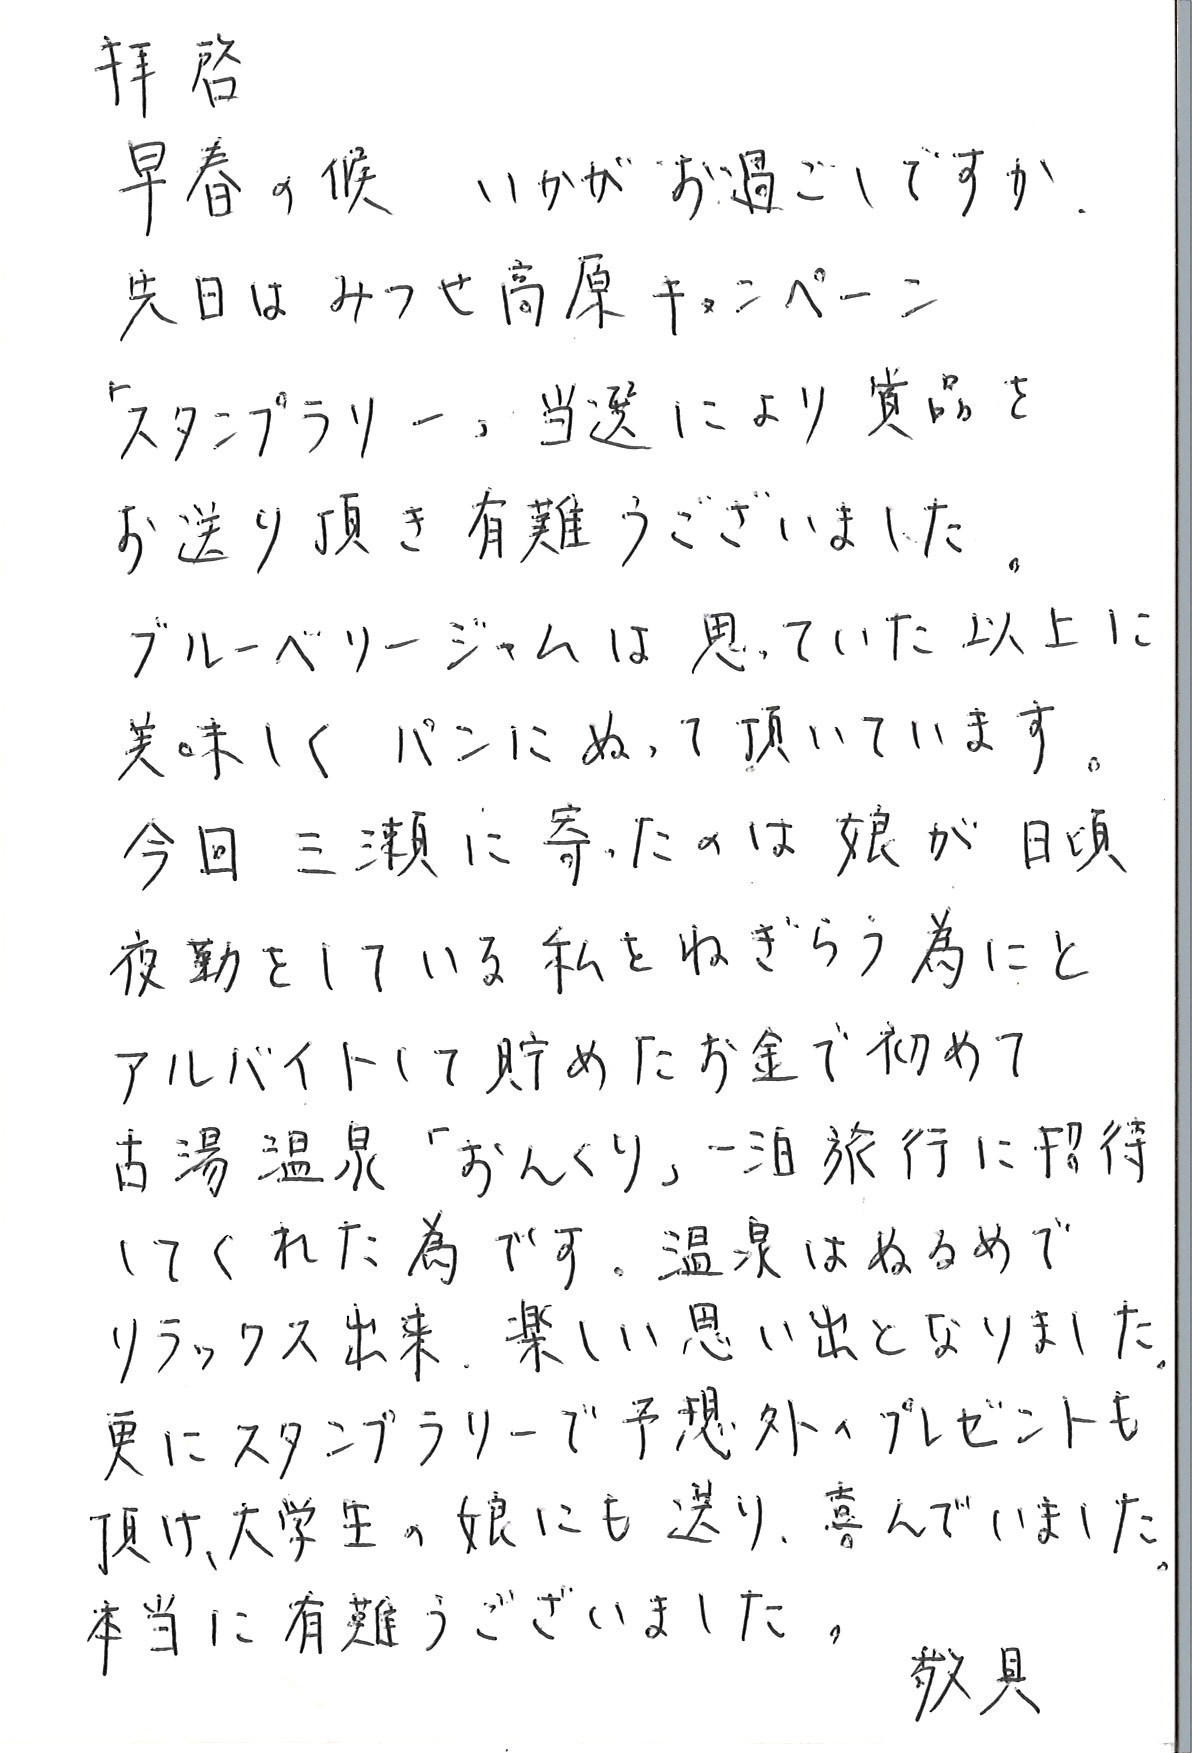 拝啓
早春の候 いかがお過ごしですか.
先日はみつせ高原キャンペーン
「スタンプラリー」当選により賞品を
お送り頂き有難うございました。
ブルーベリージャムは思っていた以上に
美味しく パンにぬって頂いています。
今回 三瀬に寄ったのは娘が日頃
夜勤をしている私をねぎらう為にと
アルバイトして貯めたお金で初めて
古湯温泉「おんくり」一泊旅行に招待
してくれた為です。温泉はぬるめで
リラックス出来、楽しい思い出となりました。
更にスタンプラリーで予想外のプレゼントも
頂け、大学生の娘にも送り、喜んでいました。
本当に有難うございました。
敬具